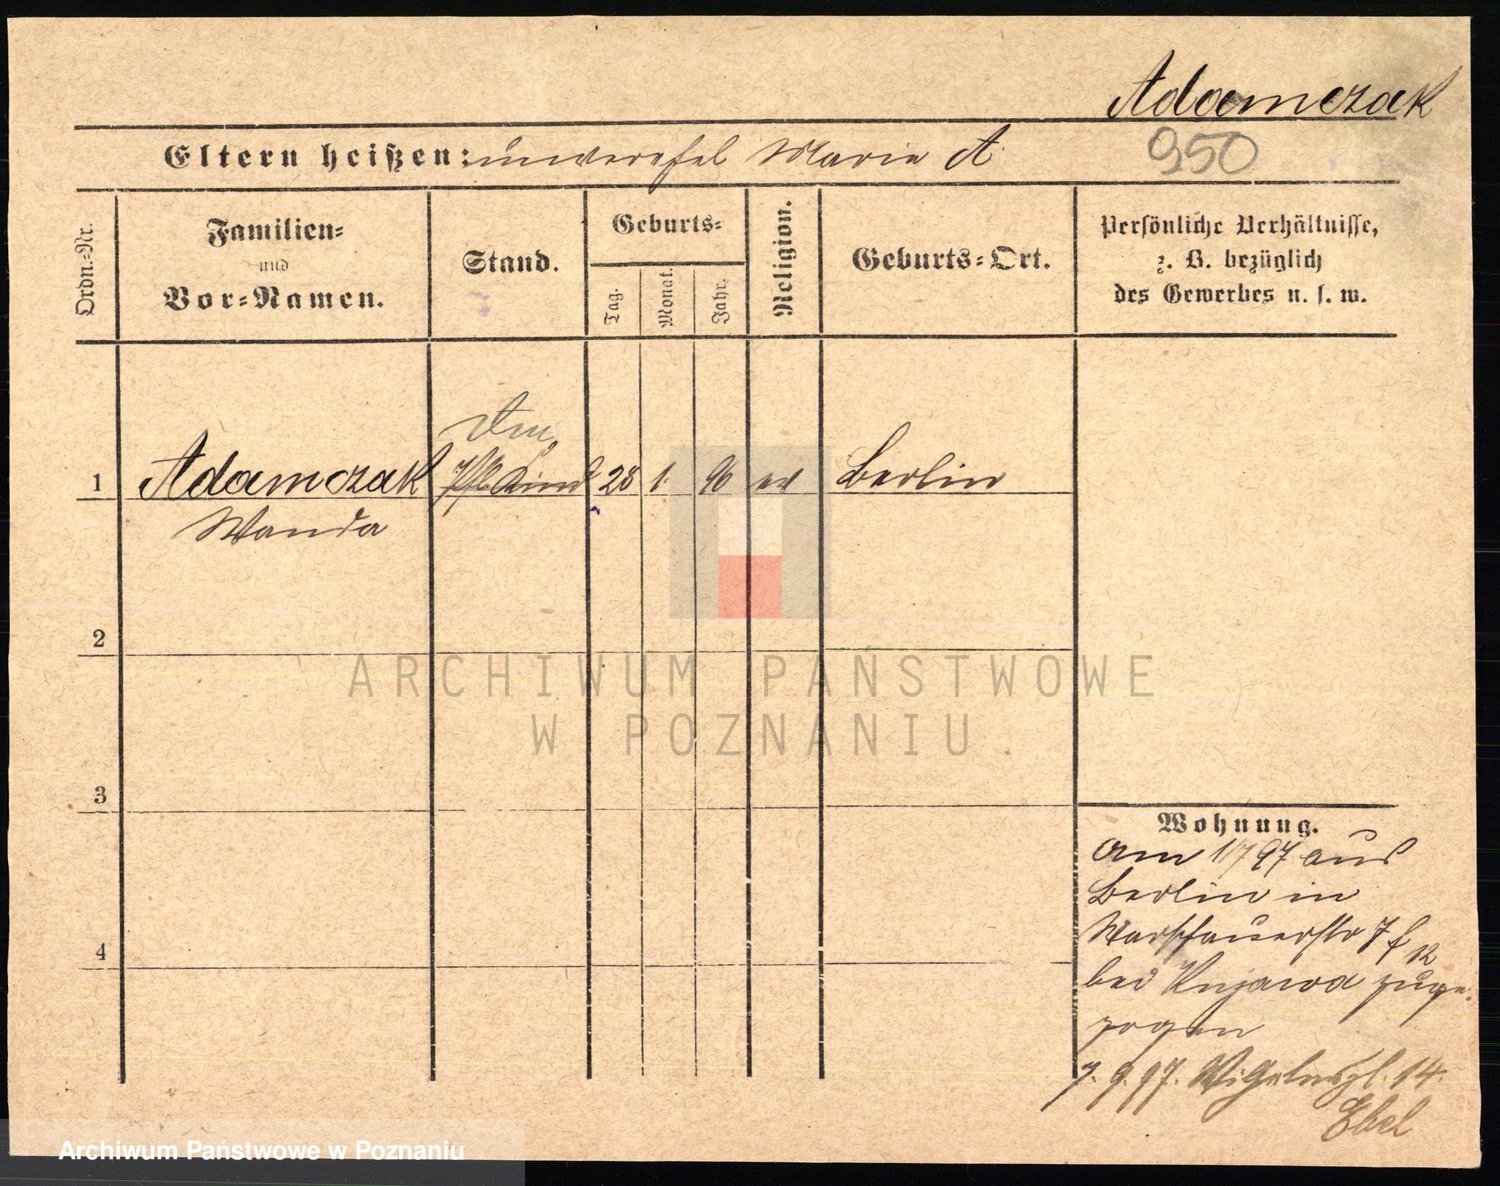 Adamczak
950
Eltern heißen: unverehel Marie A
Ordn.-Nr.
Familien-
und
Vor-Namen.
Stand.
Geburts-
Tag.
Monat.
Jahr.
Religion.
Geburts-Ort.
Persönliche Verhältnisse,
z. B. bezüglich
des Gewerbes u. s. w.
1 Adamczak Pfl Kind 28 1. 96 ev Berlin
Wanda
2
3
4
Wohnung.
am 1/7 97 aus
Berlin in
Warschauerstr 7
bei Kujawa zuge-
zogen
7. 9. 97. 14.
ARCHIWUM PAŃSTWOWE
W POZNANIU
Archiwum Państwowe w Poznaniu